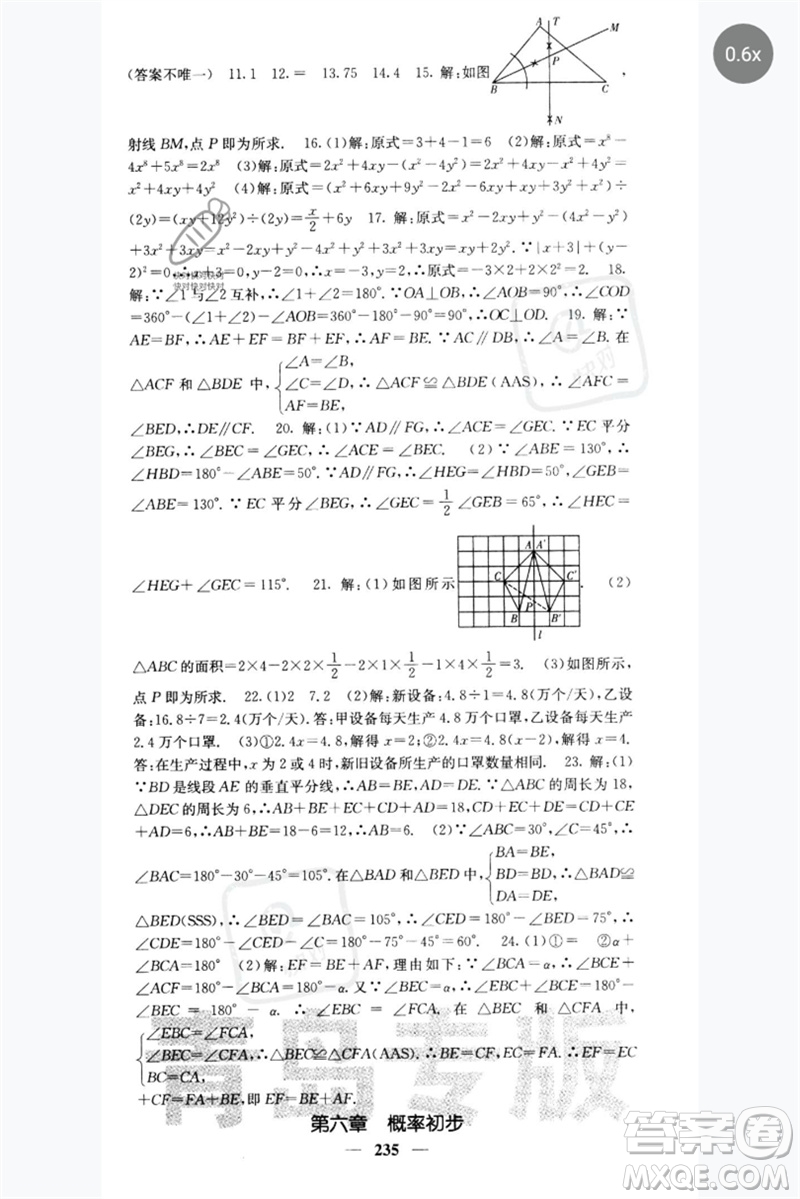 0.6x
A T M
（答案不唯一） 11.1 12.= 13.75 14.4 15.解:如图 P ,
B C
N
射线BM,点P即为所求. 16.(1)解:原式=3+4-1=6 (2)解:原式=x⁸-
4x⁸+5x⁸=2x⁸ (3)解:原式=2x²+4xy-(x²-4y²)=2x²+4xy-x²+4y²=
x²+4xy+4y² (4)解:原式=(x²+xy+4xy+4y²-x²+4xy-4xy+8y²)÷
(2y)=(xy+12y²)÷(2y)=x/2+6y 17.解:原式=x²+2xy+y²-(4x²-y²)
+3x²+3xy=x²+2xy+y²-4x²+y²+3x²+3xy=5xy+2y².∵|x+3|+(y-
2)²=0,∴x+3=0,y-2=0,∴x=-3,y=2,∴原式=5×(-3)×2+2×2²=-22. 18.
快对快对快对
快对快对快对
解:∵∠1与∠2互补,∴∠1+∠2=180°.∵OA⊥OB,∴∠AOB=90°,∴∠COD
=360°-(∠1+∠2)-∠AOB=360°-180°-90°=90°,∴OC⊥OD. 19.解:∵
AE=BF,∴AE+EF=BF+EF,∴AF=BE.∵AC∥BD,∴∠A=∠B.在
△ACF和△BDE中,{∠A=∠B,
∠C=∠D,
AF=BE,
∴△ACF≌△BDE(AAS),∴∠AFC=
∠BED,∴DE∥CF. 20.解:(1)∵AD∥FG,∴∠ACE=∠GEC.∵EC平分
∠BEG,∴∠BEC=∠GEC,∴∠ACE=∠BEC. (2)∵∠ABE=130°,∴
∠HBD=180°-∠ABE=50°.∵AD∥FG,∴∠HEG=∠HBD=50°,∠GEB=
∠ABE=130°.∵EC平分∠BEG,∴∠GEC=1/2∠GEB=65°,∴∠HEC=
∠HEG+∠GEC=115°. 21.解:(1)如图所示 . (2)
A A'
C C'
P
B B'
l
△ABC的面积=2×4-2×2×1/2-1×2×1/2-1×4×1/2=3. (3)如图所示,
点P即为所求. 22.(1)2 7.2 (2)解:新设备:4.8÷1=4.8(万个/天),乙设
备:16.8÷7=2.4(万个/天).答:甲设备每天生产4.8万个口罩,乙设备每天生产
2.4万个口罩. (3)①2.4x=4.8,解得x=2;②2.4x=4.8(x-2),解得x=4.
答:在生产过程中,x为2或4时,新旧设备所生产的口罩数量相同. 23.解:(1)
∵BD是线段AE的垂直平分线,∴AB=BE,AD=DE.∵△ABC的周长为18,
△DEC的周长为6,∴AB+BE+EC+CD+AD=18,CD+EC+DE=CD+CE
+AD=6,∴AB+BE=18-6=12,∴AB=6. (2)∵∠ABC=30°,∠C=45°,∴
∠BAC=180°-30°-45°=105°.在△BAD和△BED中,{BA=BE,
BD=BD,
DA=DE,
∴△BAD≌
△BED(SSS),∴∠BED=∠BAC=105°,∴∠CED=180°-∠BED=75°,∴
∠CDE=180°-∠CED-∠C=180°-75°-45°=60°. 24.(1)①= ②α+
∠BCA=180° (2)解:EF=BE+AF,理由如下:∵∠BEC=α,∴∠BCE+
∠ACF=180°-∠BCA=180°-α.∵∠BEC=α,∴∠EBC+∠BCE=180°-
∠BEC=180°-α.∴∠EBC=∠FCA.在△BEC和△CFA中,
{∠EBC=∠FCA,
∠BEC=∠CFA,
BC=CA,
∴△BEC≌△CFA(AAS).∴BE=CF,EC=FA.∴EF=EC
+CF=FA+BE,即EF=BE+AF.
青岛专版
第六章 概率初步
235
答案圈
MXQE.COM